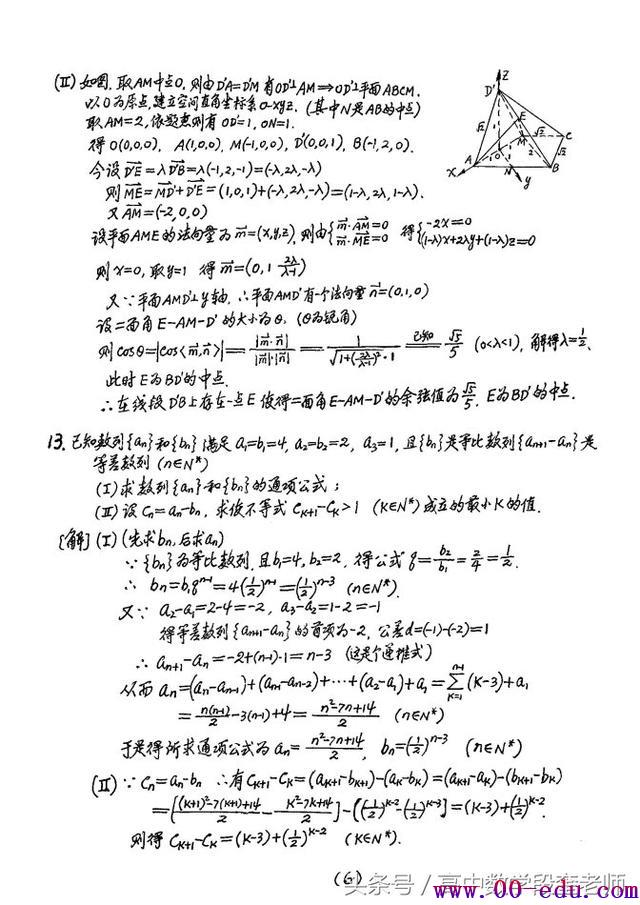 (II) 如图, 取AM中点O, 则由D'A=D'M 有OD'⊥AM⟹OD'⊥平面ABCM.
以O为原点,建立空间直角坐标系O-xyz. (其中N是AB的中点)
取AM=2, 依题意则有 OD'=1, ON=1.
得 O(0,0,0), A(1,0,0), M(-1,0,0), D'(0,0,1), B(-1,2,0).
今设 D'E=λD'B=λ(-1,2,-1)=(-λ,2λ,-λ)
则 ME=MD'+D'E=(1,0,1)+(-λ,2λ,-λ)=(1-λ,2λ,1-λ).
又 AM=(-2,0,0)
设平面AME的法向量为 m=(x,y,z), 则由{m·AM=0 m·ME=0 得{-2x=0 (1-λ)x+2λy+(1-λ)z=0
则 x=0, 取y=1 得 m=(0,1,2λ/(λ-1))
又∵平面AMD'⊥y轴, ∴平面AMD'有一个法向量 n=(0,1,0)
设二面角 E-AM-D' 的大小为θ. (θ为锐角)
则 cosθ=|cos<m,n>|=|m·n|/|m|·|n|=1/√(1+(2λ/(λ-1))²)·1 已知= √5/5 (0<λ<1), 解得λ=1/2.
此时E为BD'的中点.
∴在线段D'B上存在一点E 使得二面角E-AM-D'的余弦值为√5/5, E为BD'的中点.
Z
D'
E
√2
√2
M
C
√2
A
O
1
1
2
N
B
x
y
13. 已知数列{an}和{bn}满足 a1=b1=4, a2=b2=2, a3=1, 且{bn}是等比数列{an+1-an}是
等差数列 (n∈N*)
(I) 求数列{an}和{bn}的通项公式;
(II) 设 Cn=an-bn, 求使不等式 Ck+1-Ck>1 (K∈N*)成立的最小K的值.
[解] (I) (先求bn, 后求an)
∵{bn}为等比数列, 且b1=4, b2=2, 得公式 q=b2/b1=2/4=1/2.
∴ bn=b1qⁿ⁻¹=4(1/2)ⁿ⁻¹=(1/2)ⁿ⁻³ (n∈N*).
又∵ a2-a1=2-4=-2, a3-a2=1-2=-1
得等差数列{an+1-an}的首项为-2, 公差d=(-1)-(-2)=1
∴ an+1-an=-2+(n-1)·1=n-3 (这是个递推式)
从而 an=(an-an-1)+(an-1-an-2)+···+(a2-a1)+a1=Σ(K=1→n-1)(K-3)+a1
=n(n-1)/2-3(n-1)+4=(n²-7n+14)/2 (n∈N*)
于是得所求通项公式为 an=(n²-7n+14)/2, bn=(1/2)ⁿ⁻³ (n∈N*)
(II) ∵Cn=an-bn ∴有 Ck+1-Ck=(ak+1-bk+1)-(ak-bk)=(ak+1-ak)-(bk+1-bk)
=[((K+1)²-7(K+1)+14)/2-(K²-7K+14)/2]-[(1/2)ᴷ⁻²-(1/2)ᴷ⁻³]=(K-3)+(1/2)ᴷ⁻².
则得 Ck+1-Ck=(K-3)+(1/2)ᴷ⁻² (K∈N*).
(6)
头条号 / 高中数学段奎老师
www.00-edu.com